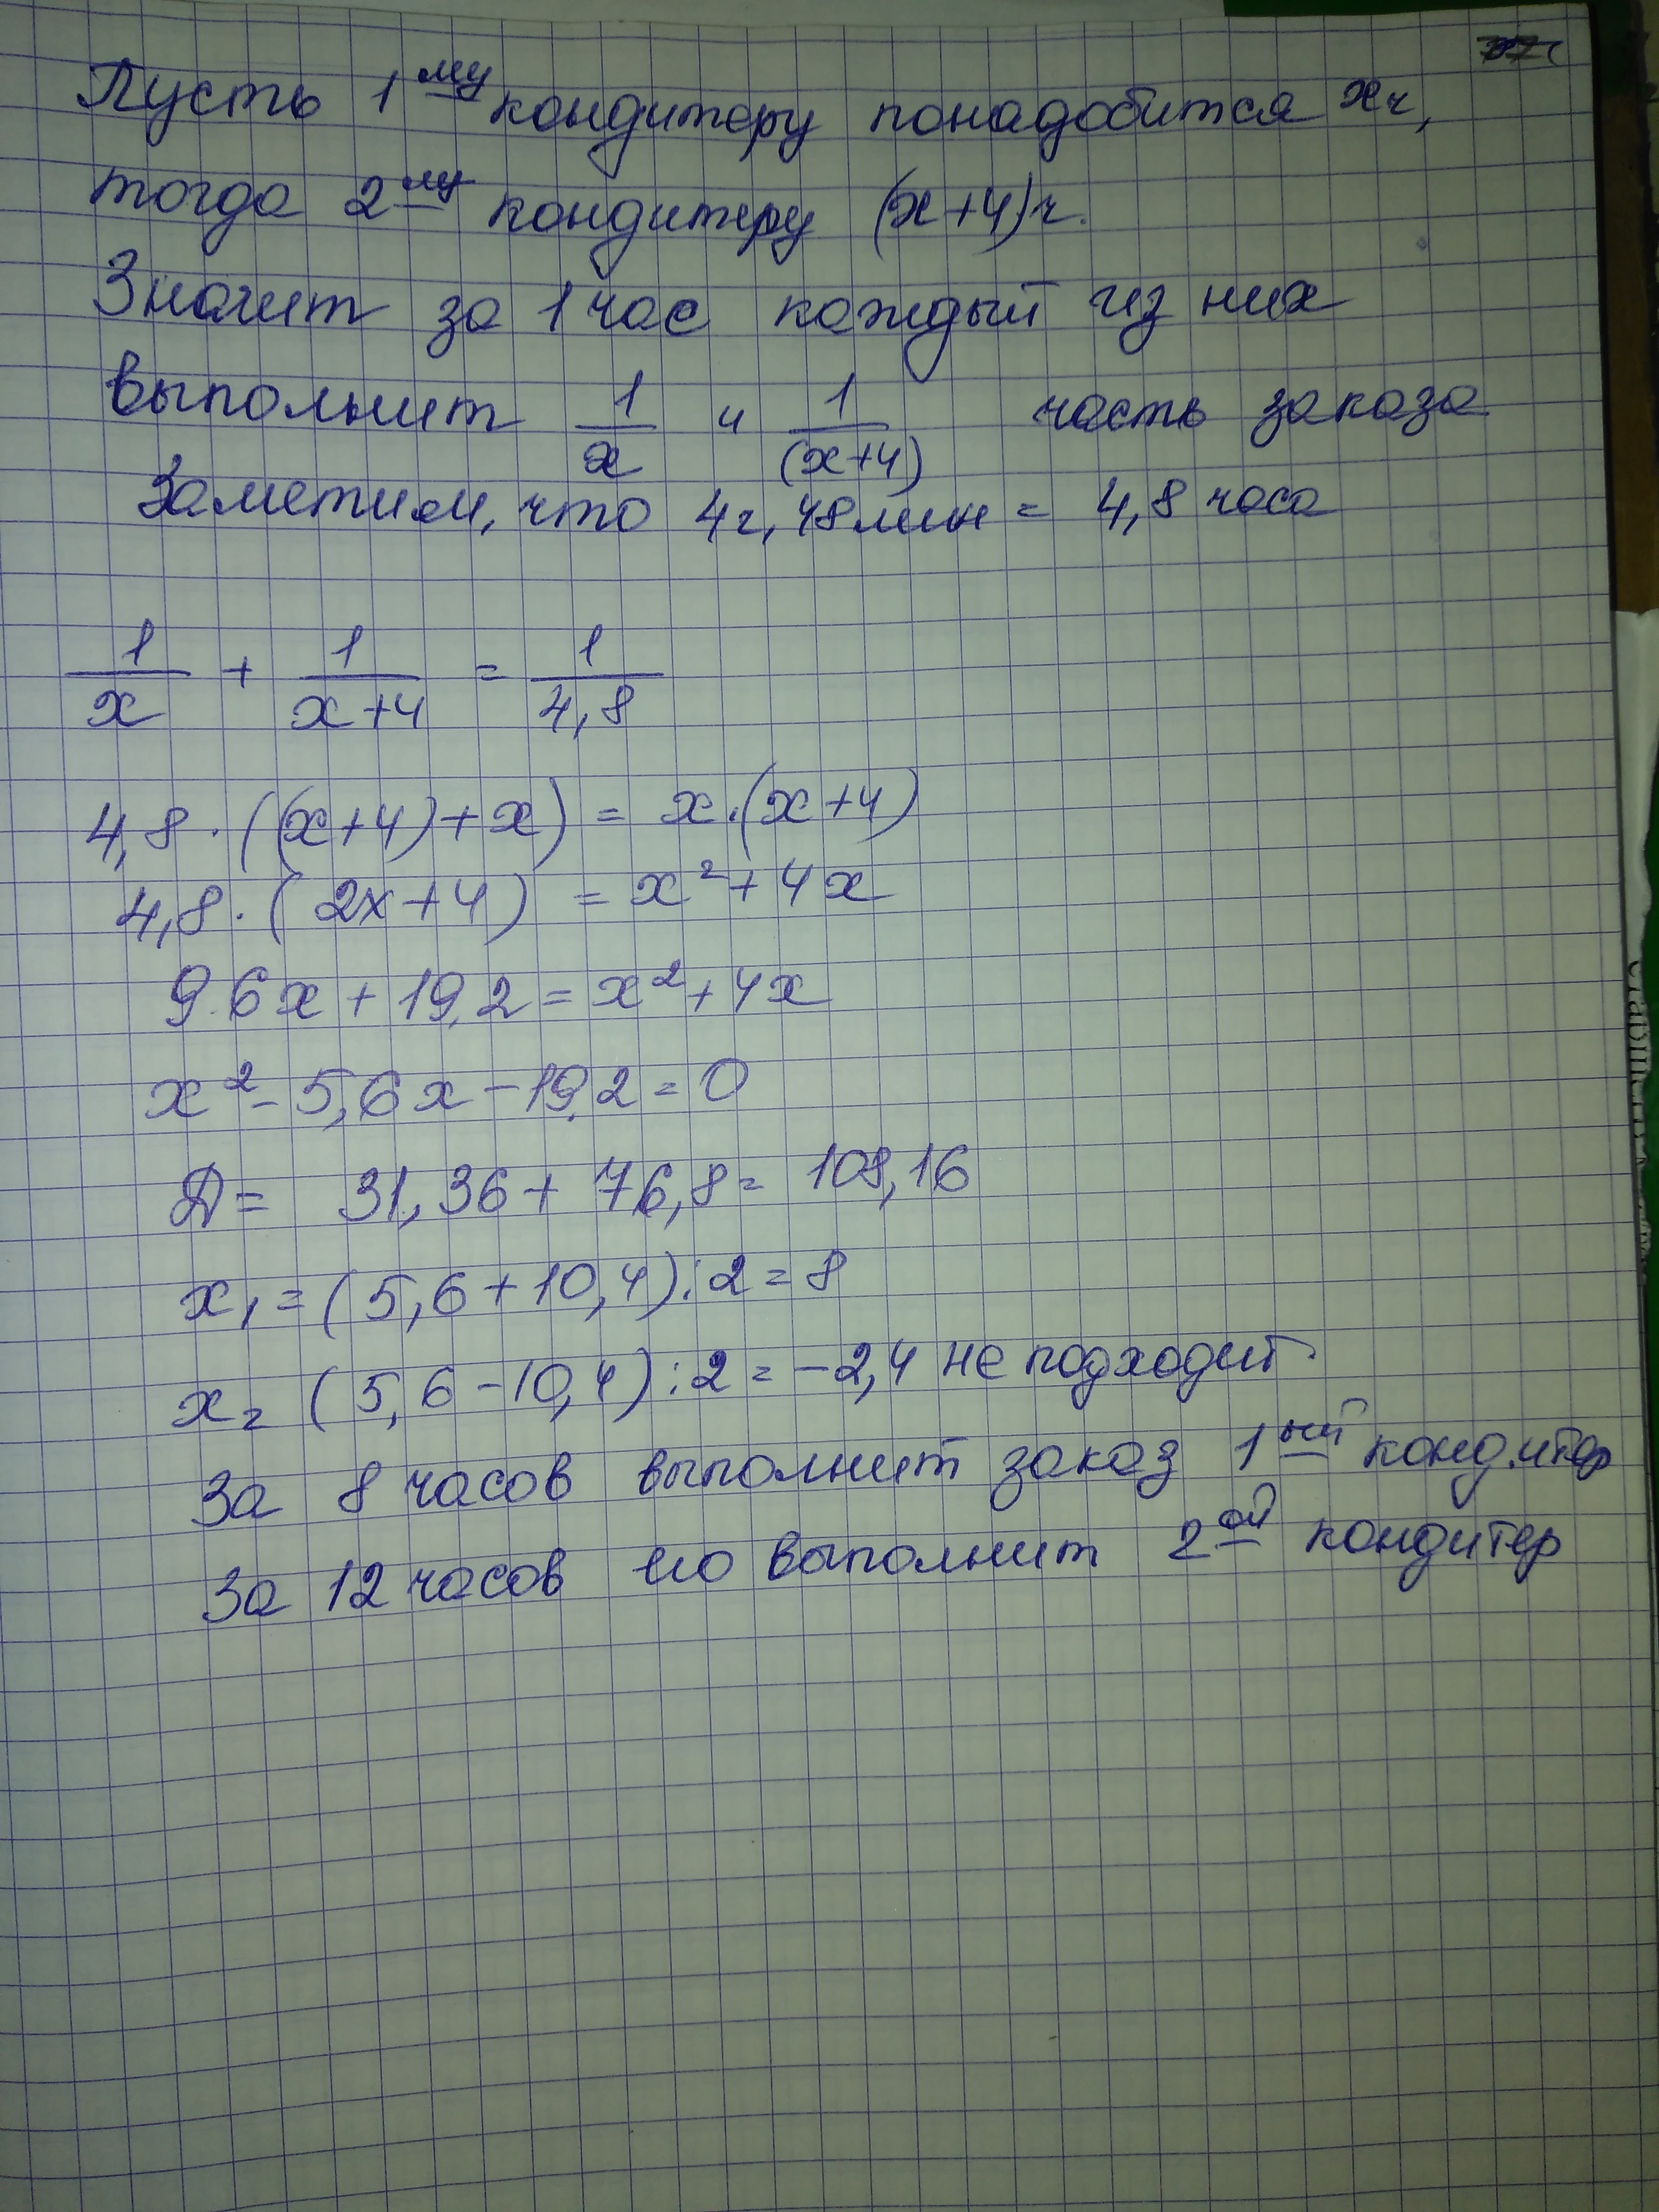 Пусть 1му кондитеру понадобится x ч,
тогда 2му кондитеру (x+4) ч.
Значит за 1 час каждый из них
выполнит 1/x и 1/(x+4) часть заказа
Заметим, что 4ч, 48 мин = 4,8 часа
1/x + 1/x+4 = 1/4,8
4,8 · ((x+4)+x) = x·(x+4)
4,8 · (2x+4) = x² + 4x
9.6x + 19,2 = x² + 4x
x² - 5,6x - 19,2 = 0
Д = 31,36 + 76,8 = 108,16
x₁ = (5,6 + 10,4) : 2 = 8
x₂ (5,6 - 10,4) : 2 = -2,4 не подходит.
За 8 часов выполнит заказ 1ый кондитер
За 12 часов его выполнит 2ой кондитер